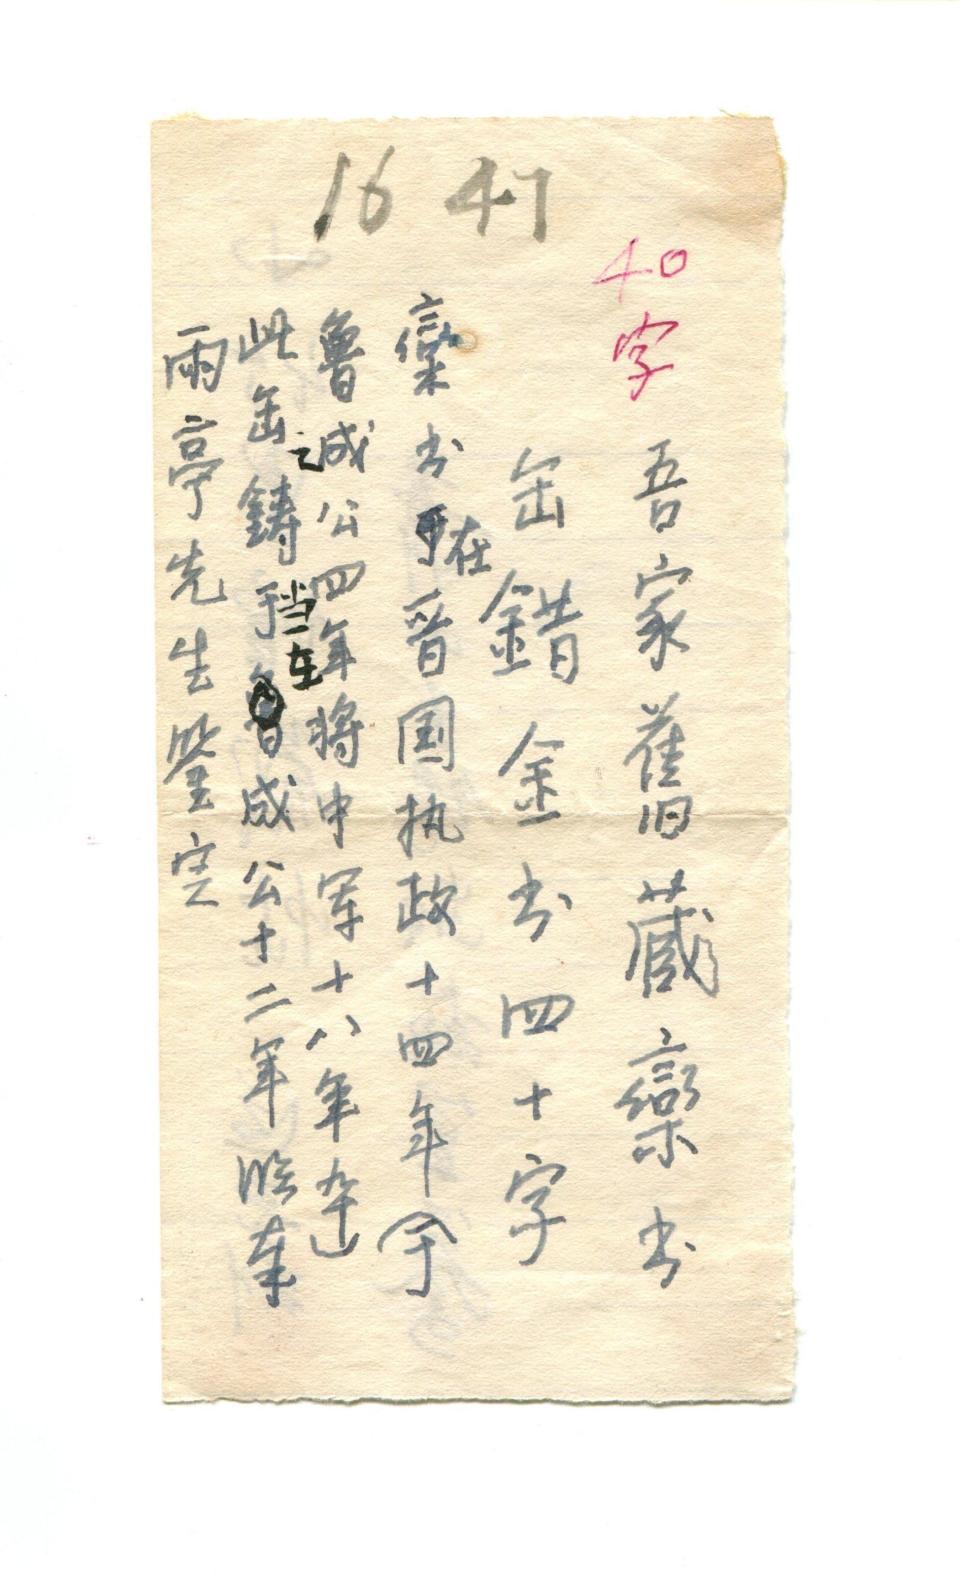 16 47
40字
吾家舊藏欒书
缶錯金书四十字
欒书在晋国执政十四年(于
魯成公四年将中军十八年卒)
此缶之鑄于当在魯成公十二年临奉
雨亭先生鑒定